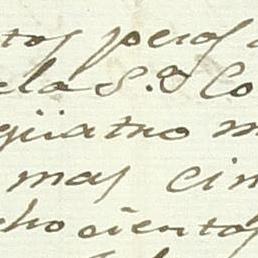 tos pesos
de la S.ª Co
quatro m
mas cin
cho cientos